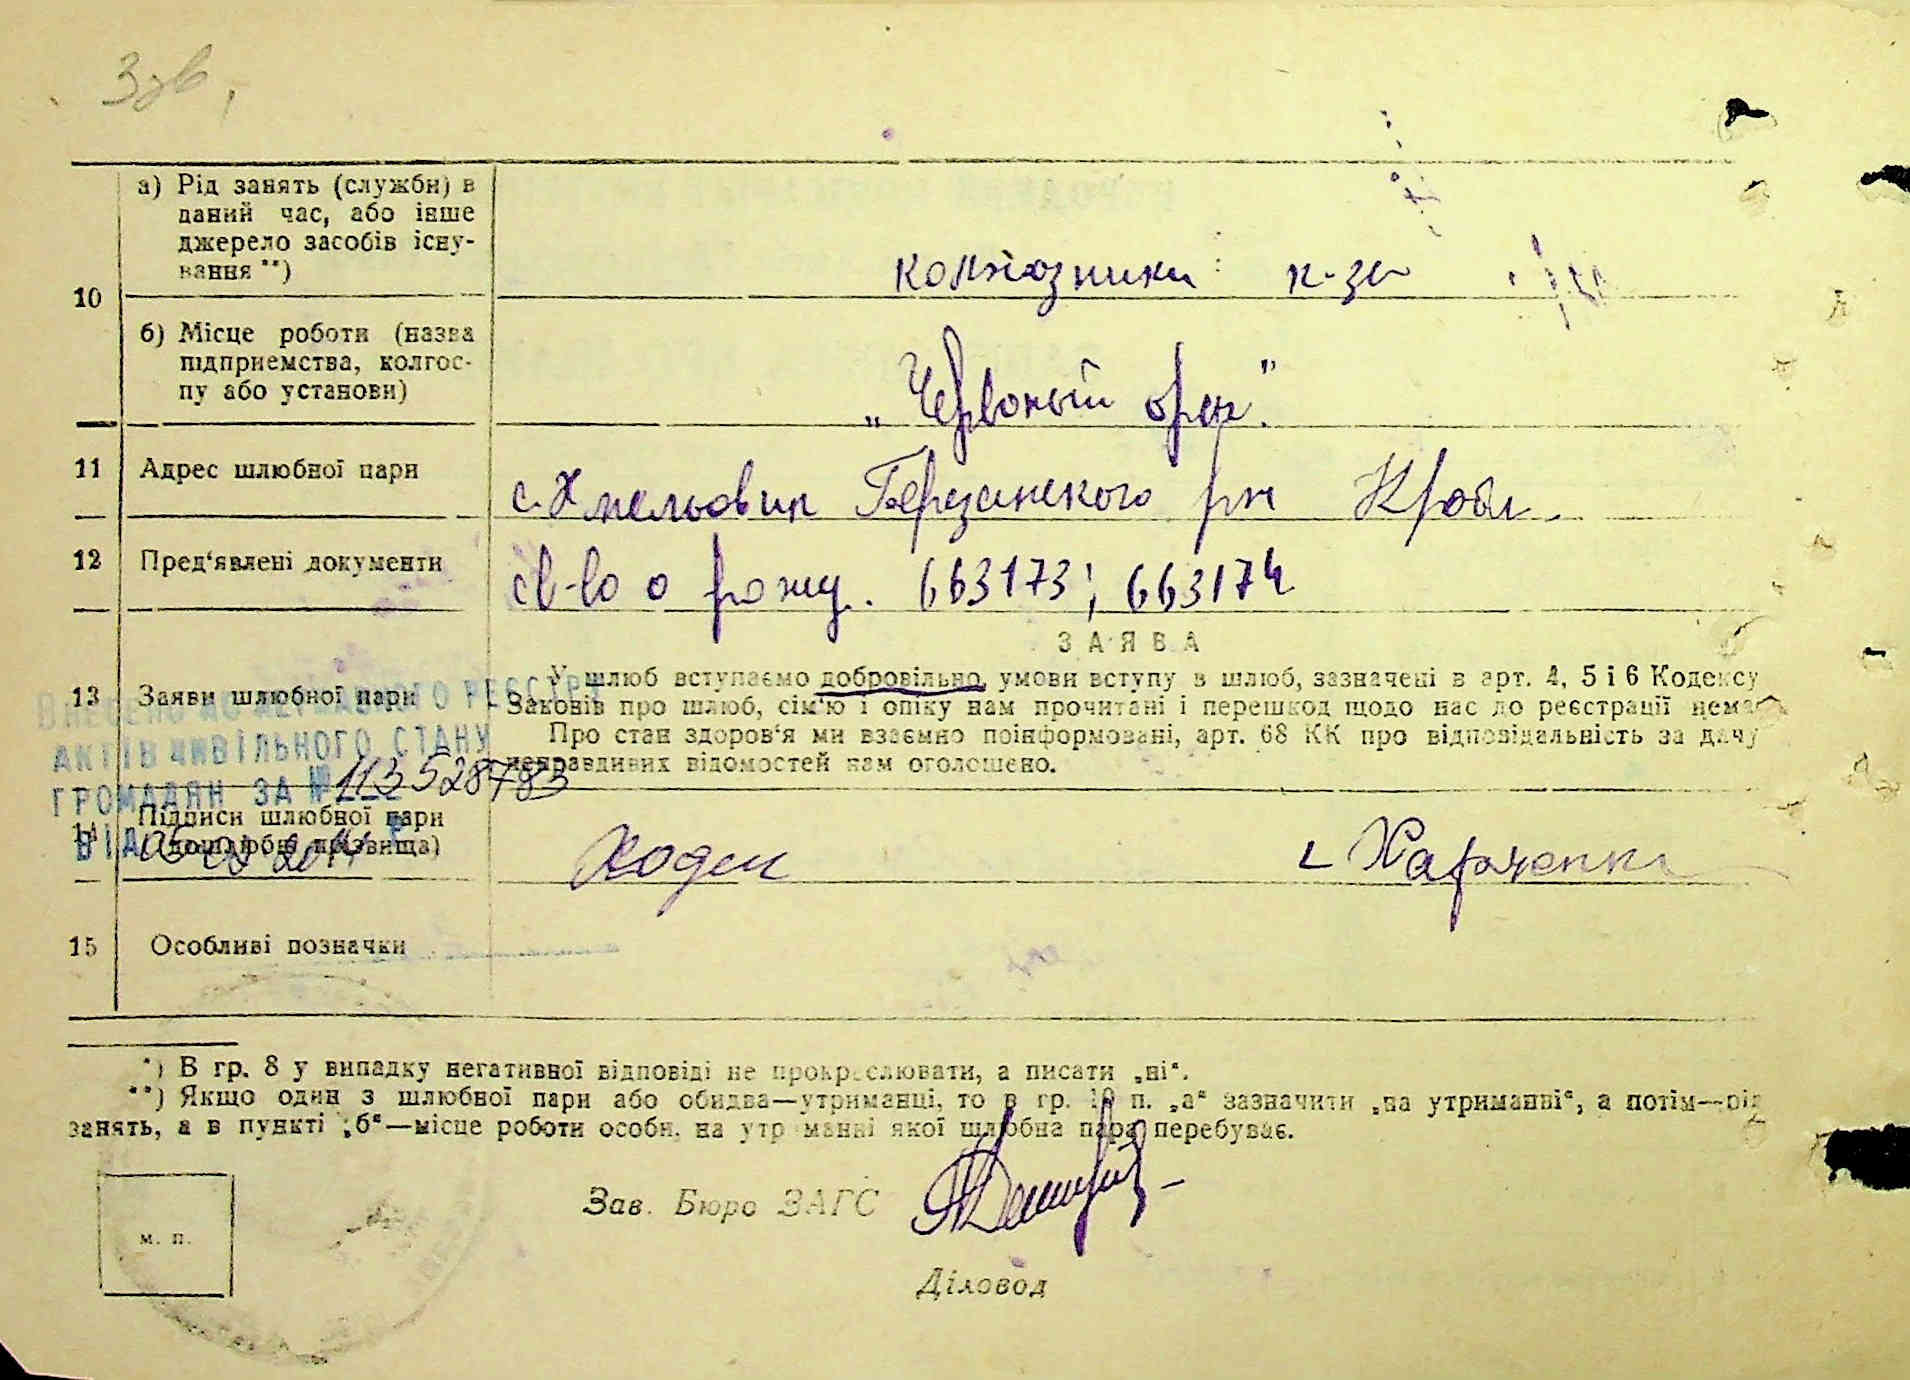 Ззв,
10
а) Рід занять (служби) в
даний час, або інше
джерело засобів існу-
вання **)
колхозники к-за
б) Місце роботи (назва
підприємства, колгос-
пу або установи)
„Червоный орач"
11 Адрес шлюбної пари
с. Хмельовик Березанского р-н
12 Пред‘явлені документи
св-во о рожд. 663173; 663174
ЗАЯВА
13 Заяви шлюбної пари
У шлюб вступаємо добровільно, умови вступу в шлюб, зазначені в арт. 4, 5 і 6 Кодексу
Законів про шлюб, сім‘ю і опіку нам прочитані і перешкод щодо нас до реєстрації немає.
Про стан здоров‘я ми взаємно поінформовані, арт. 68 КК про відповідальність за дачу
неправдивих відомостей нам оголошено.
ВНЕСЕНО ДО ДЕРЖАВНОГО РЕЄСТРУ
АКТІВ ЦИВІЛЬНОГО СТАНУ
ГРОМАДЯН ЗА № 113528783
14 Підписи шлюбної пари
(дошлюбні прізвища)
ВІД
Харченко
15 Особливі позначки
*) В гр. 8 у випадку негативної відповіді не прокреслювати, а писати „ні“.
**) Якщо один з шлюбної пари або обидва—утриманці, то в гр. 10 п. „а“ зазначити „на утриманні“, а потім—рід
занять, а в пункті „б“—місце роботи особи, на утриманні якої шлюбна пара перебуває.
Зав. Бюро ЗАГС
м. п.
Діловод